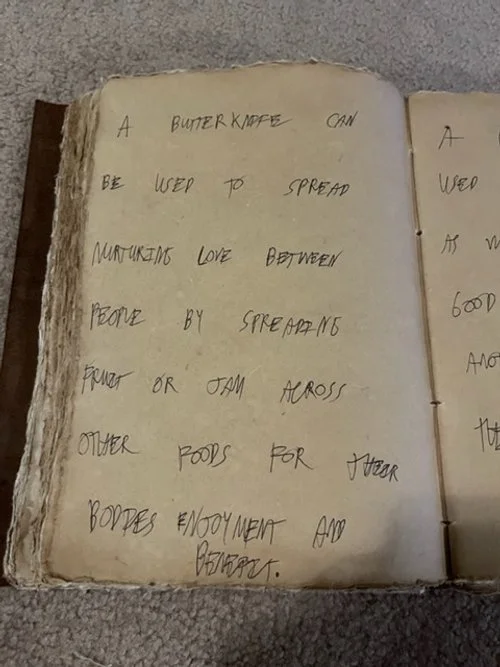 A BUTTERKNIFE CAN
BE USED TO SPREAD
NURTURING LOVE BETWEEN
PEOPLE BY SPREADING
FRUIT OR JAM ACROSS
OTHER FOODS FOR THEIR
BODIES ENJOYMENT AND
BENEFIT.
A
USED
AS
GOOD